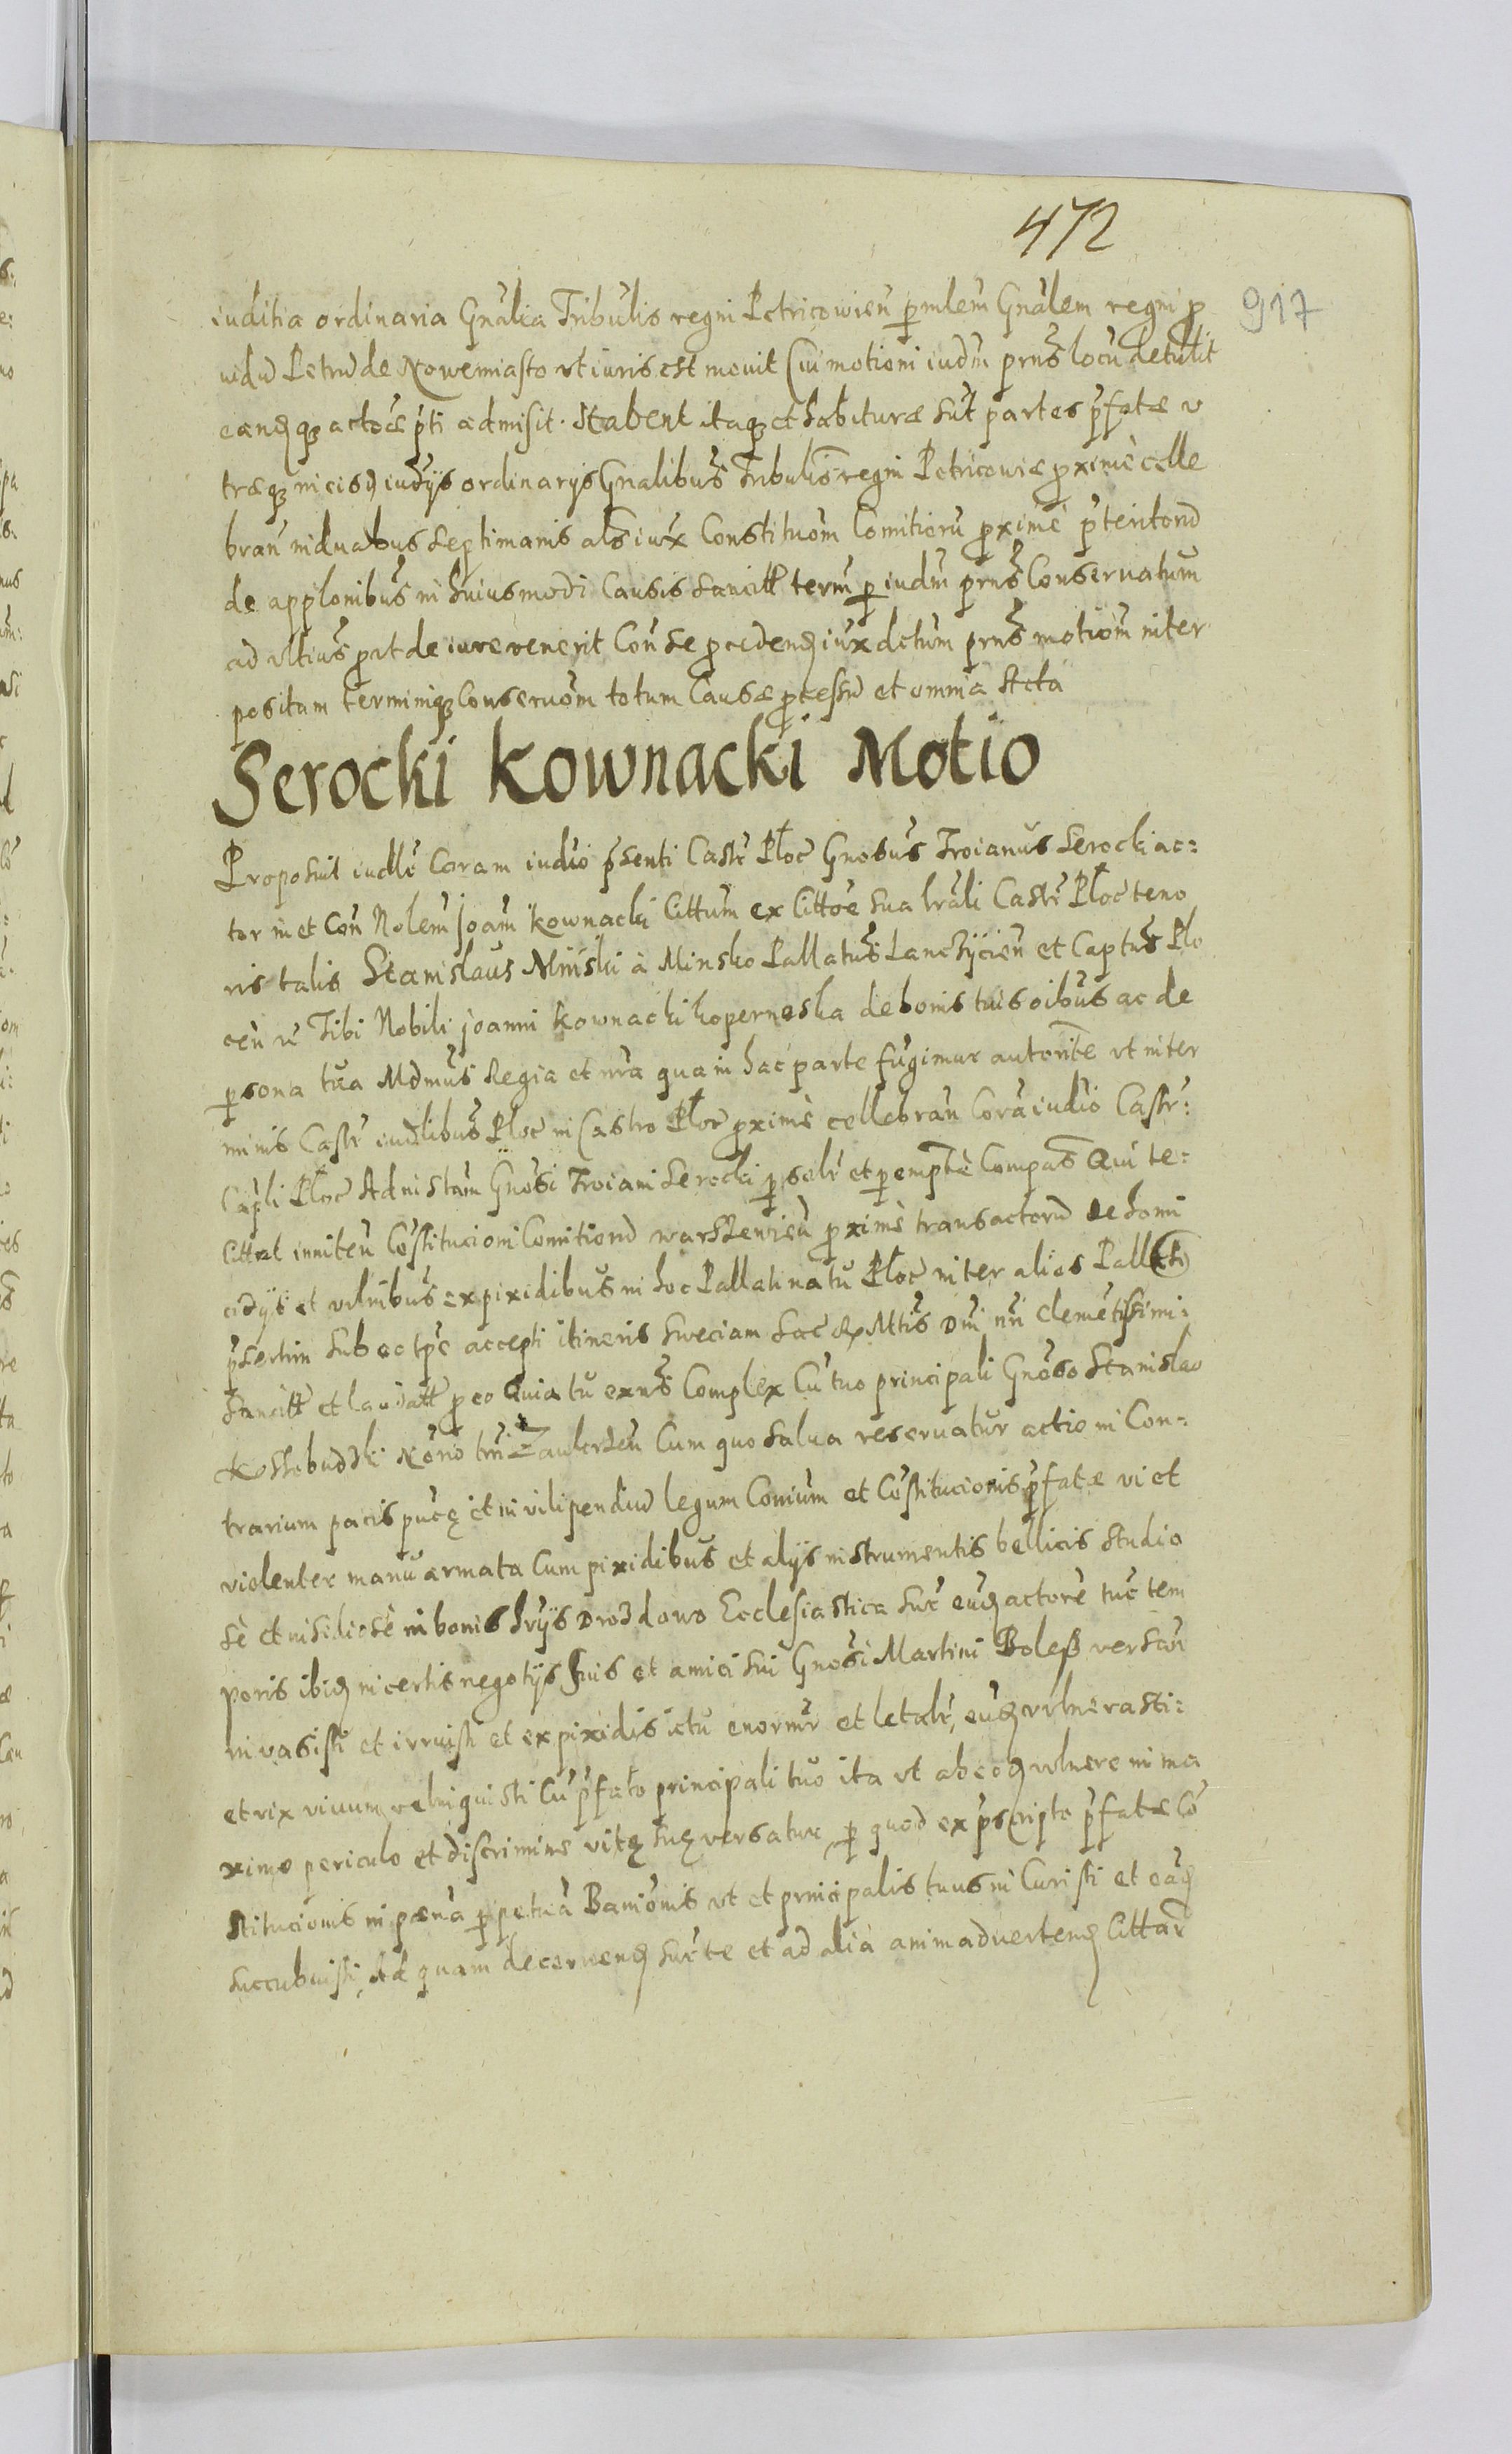 472
917
iuditia ordinaria Gnalia Tribulis regni Petricowien pmlem Gnalem regni p
uidu Petru de Nowemiasto ut iuris est mouit Cui motioni iudm prns locu detulit
eandqz actoe pti admisit. Habent itaqz et habituræ sut partes pfatæ v
træqz in eisd iudys ordinarys Gnalibus Tribulis regni Petricouiæ pxime celle
bran in duabus septimanis als iux Constituom Comitioru pxime pteritoru
de applonibus in huiusmodi Causis sancitt term p iudm prns Conseruatum
ad vltius put de iure venerit Con se pcedend iux dctum prns motiom inter
positam terminiqz Conseruom totum Causæ pcessu et omnia Acta
Serocki Kownacki Motio
Proposuit iudlr Coram iudio psenti Castr Ploc Gnosus Troianus Serocki ac:
tor in et Con Nolem Joam Kownacki Cittum ex Cittoe sua lrali Castr Ploc teno
ris talis Stanislaus Miński à Minsko Pallatus Lanczycien et Captus Plo
cen re Tibi Nobili Joanni Kownacki koperneska de bonis tuis oibus ac de
psona tua Mdmus Regia et nra qua in hac parte fugimur autorite vt in ter
minis Castr iudlibus Ploc in Castro Ploc pxime cellebran Cora iudio Castr:
Capli Ploc Ad nistam Gnosi Troiani Serocki p selr et pemptè Compas Qui te:
Cittat inniten Costitucioni Comitiord warszewien pxime transactord de homi
cidys et vulnibus ex pixidibus in hoc Pallatinatu Ploc inter alios Pallts
psertim sub ec tpe accepti itineris Sueciam Sac R Mtis Dni nri clemetissimi
sancitt et laudatt p eo Quia tu exns Complex Cu tuo principali Gnoso Stanislao
Kossobudzki Nono trii Zawlerzen Cum quo salua reseruatur actio in Con:
trarium pacis puce et in vilipendiu legum Comium et Costitucionis pfatæ vi et
violenter manu armata Cum pixidibus et alijs instrumentis bellicis studio
sè et insidiosè in bonis hrijs Drozdowo Ecclesiastica sup eud actore tuc tem
poris ibid in certis negotijs suis et amici sui Gnosi Martini Boless versan
inuasisti et irruisti et ex pixidis ictu enormr et letalr, eud vulnerasti:
et vix viuum relinquisti Cu pfato principali tuo ita vt ab eod vulnere in ma
ximo periculo et discrimine vitę suę versatur, p quod ex pscripto pfatæ Co
stitucionis in pæna ppetua Banionis vt et principalis tuus in Curristi et ead
succubuisti, Ad quam decernend supte et ad alia animaduertend Cittar